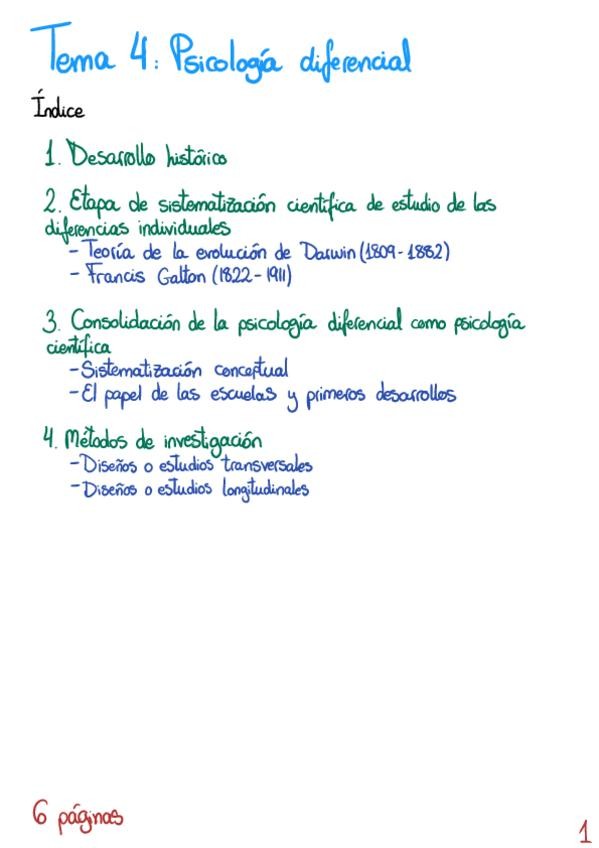 Tema 4: Psicología diferencial
Índice
1. Desarrollo histórico
2. Etapa de sistematización científica de estudio de las
diferencias individuales
- Teoría de la evolución de Darwin (1809-1882)
- Francis Galton (1822-1911)
3. Consolidación de la psicología diferencial como psicología
científica
- Sistematización conceptual
- El papel de las escuelas y primeros desarrollos
4. Métodos de investigación
- Diseños o estudios transversales
- Diseños o estudios longitudinales
6 páginas
1